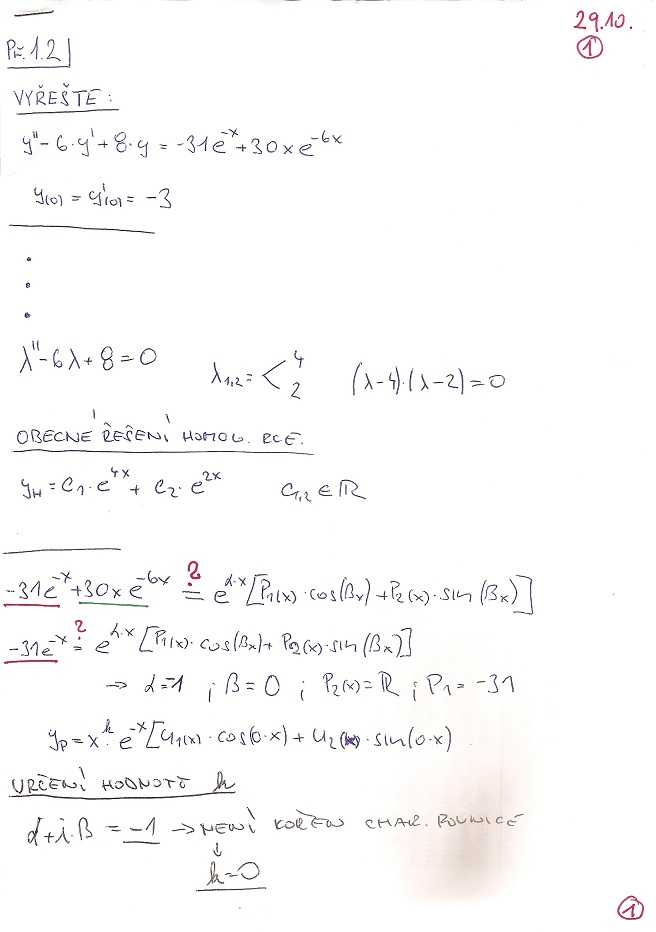 29.10.
①
Př. 1.2
VYŘEŠTE:
y'' - 6·y' + 8·y = -31e^{-x} + 30xe^{-6x}
y(0) = y'(0) = -3
λ'' - 6λ + 8 = 0   λ_{1,2} = < 4 2   (λ-4)·(λ-2) = 0
OBECNÉ ŘEŠENÍ HOMOG. RCE.
y_H = C_1·e^{4x} + C_2·e^{2x}   C_{1,2} ∈ ℝ
-31e^{-x} + 30xe^{-6x} ?= e^{α·x}[P_1(x)·cos(βx) + P_2(x)·sin(βx)]
-31e^{-x} ?= e^{α·x}[P_1(x)·cos(βx) + P_2(x)·sin(βx)]
→ α=-1 ; β=0 ; P_2(x)=ℝ ; P_1=-31
y_P = x^k·e^{-x}[U_1(x)·cos(0·x) + U_2(x)·sin(0·x)
URČENÍ HODNOTY k
α+i·β = -1 → NENÍ KOŘEN CHAR. ROVNICE
↓
k=0
①